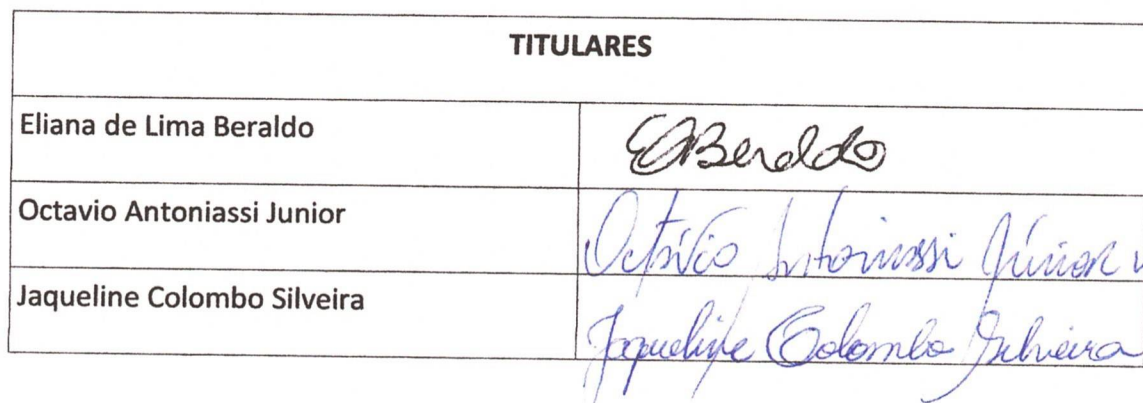 TITULARES
Eliana de Lima Beraldo
EBeraldo
Octavio Antoniassi Junior
Octávio Antoniassi Júnior
Jaqueline Colombo Silveira
Jaqueline Colombo Silveira